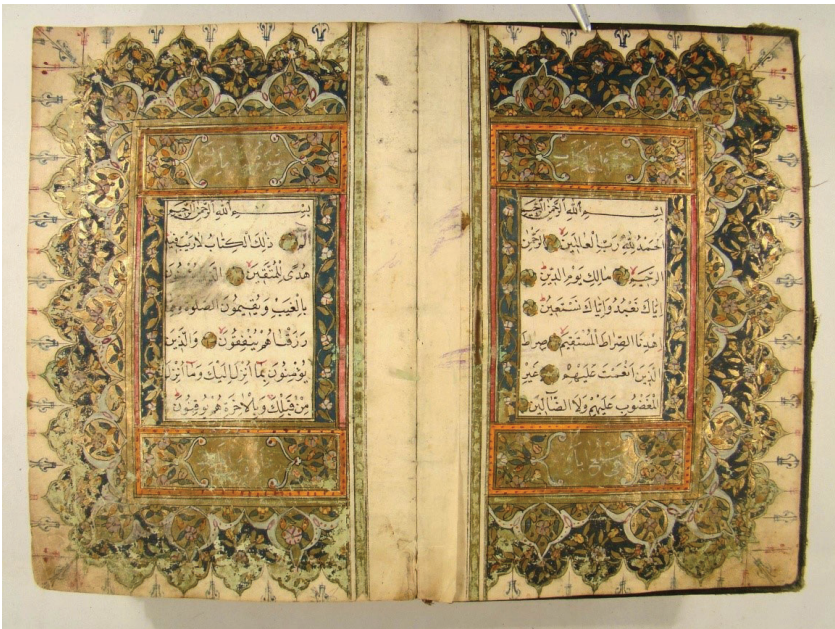 بسم الله الرحمن الرحيم
الحمد لله رب العالمين الرحمن
الرحيم مالك يوم الدين
إياك نعبد وإياك نستعين
اهدنا الصراط المستقيم صراط
الذين أنعمت عليهم غير
المغضوب عليهم ولا الضالين
بسم الله الرحمن الرحيم
الم ذلك الكتاب لا ريب فيه
هدى للمتقين الذين يؤمنون
بالغيب ويقيمون الصلوة ومما
رزقناهم ينفقون والذين
يؤمنون بما أنزل إليك وما أنزل
من قبلك وبالآخرة هم يوقنون